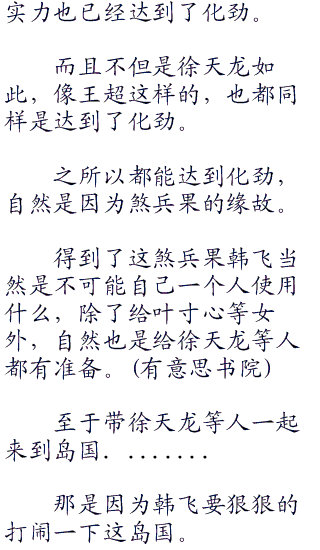 实力也已经达到了化劲。
而且不但是徐天龙如
此，像王超这样的，也都同
样是达到了化劲。
之所以都能达到化劲，
自然是因为煞兵果的缘故。
得到了这煞兵果韩飞当
然是不可能自己一个人使用
什么，除了给叶寸心等女
外，自然也是给徐天龙等人
都有准备。(有意思书院)
至于带徐天龙等人一起
来到岛国．．．．．．．．
那是因为韩飞要狠狠的
打闹一下这岛国。